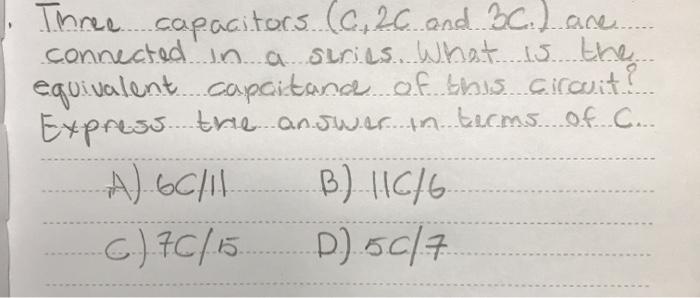 Three capacitors (C, 2C and 3C.) are
connected in a series. What is the
equivalent capcitance of this circuit?
Express the answer in terms of C.
A) 6C/11 B) 11C/6
C) 7C/15 D) 5C/7